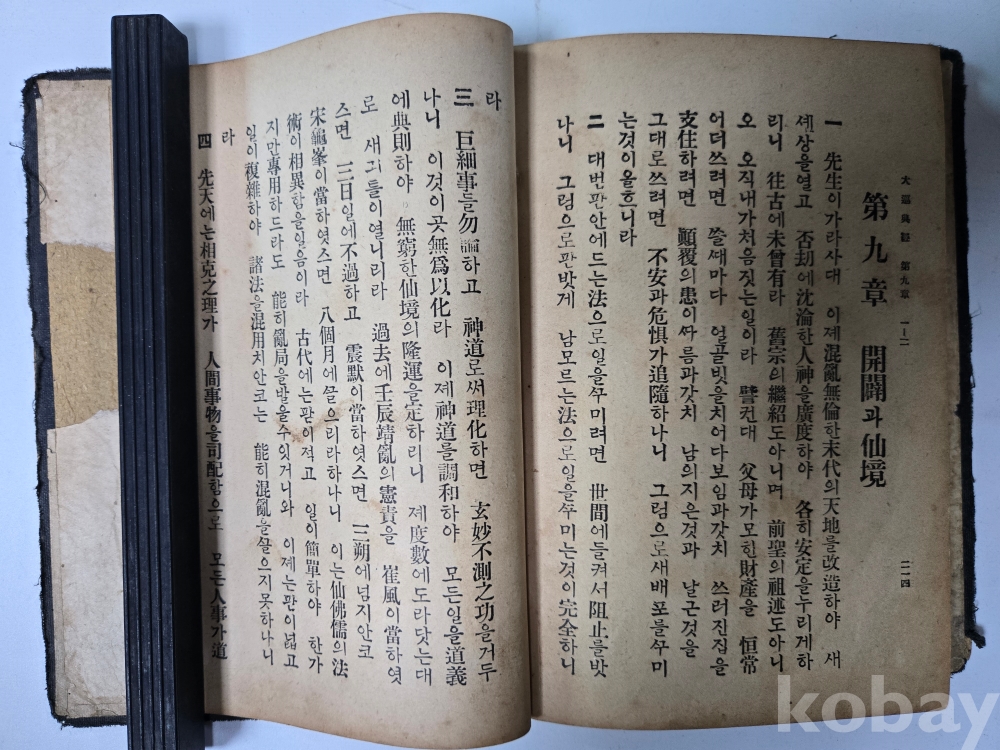 大巡典經 第九章 一—二
一一四
第九章 開闢과仙境
一 先生이가라사대 이제混亂無倫한末代의天地를改造하야 새
셰상을열고 否劫에沈淪한人神을廣度하야 各히安定을누리게하
리니 往古에未曾有라 舊宗의繼紹도아니며 前聖의祖述도아니
오 오직내가처음짓는일이라 譬컨대 父母가모한財產을 恒常
어더쓰려면 쓸때마다 얼골빗을치어다보임과갓치 쓰러진집을
支住하려면 顚覆의患이싸름과갓치 남의지은것과 날근것을
그대로쓰려면 不安과危惧가追隨하나니 그럼으로새배포를꾸미
는것이올흐니라
二 대번판안에드는法으로일을꾸미려면 世間에들켜서阻止를밧
나니 그럼으로판밧게 남모르는法으로일을꾸미는것이完全하니
라
三 巨細事를勿論하고 神道로써理化하면 玄妙不測之功을거두
나니 이것이곳無爲以化라 이제神道를調和하야 모든일을道義
에典則하야 無窮한仙境의隆運을定하리니 제度數에도라닷는대
로 새긔틀이열니리라 過去에壬辰靖亂의憲責을 崔風이當하엿
스면 三日일에不過하고 震默이當하엿스면 三朔에넘지안코
宋龜峯이當하엿스면 八個月에끌으리라하나니 이는仙佛儒의法
術이相異함을일음이라 古代에는판이적고 일이簡單하야 한가
지만專用하드라도 能히亂局을발을수잇거니와 이제는판이넓고
일이複雜하야 諸法을混用치안코는 能히混亂을끌으지못하나니
라
四 先天에는相克之理가 人間事物을司配함으로 모든人事가道
kobay